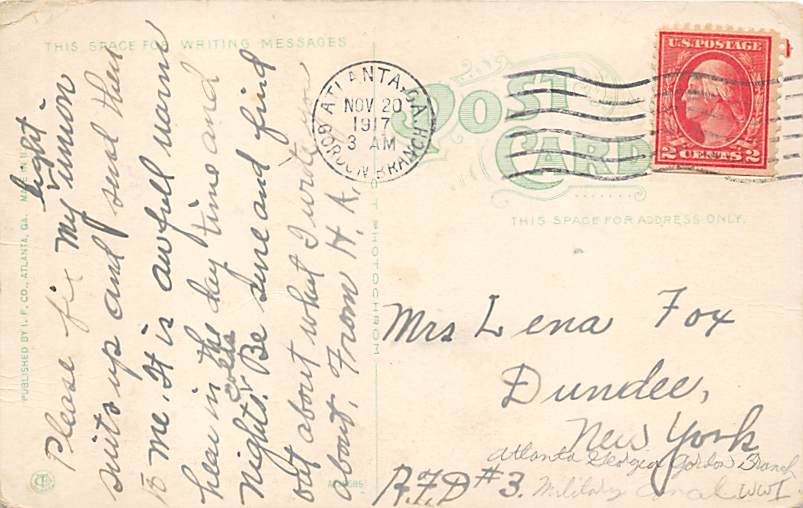 THIS SPACE FOR WRITING MESSAGES
Please fix My light union
suits up and send them
to me. It is awfull warm
hear in the day time and
Nights. colds Be sure and find
out about what I wrote un
about, From H. A.
PUBLISHED BY I. F. CO., ATLANTA, GA.
POST
CARD
THIS SPACE FOR ADDRESS ONLY.
ATLANTA, GA.
NOV 20
1917
3 AM
GORDON BRANCH
U.S. POSTAGE
2 CENTS 2
Mrs Lena Fox
Dundee,
New York
R.F.D #3.
Atlanta Georgia Gordon Branch
Military WWI